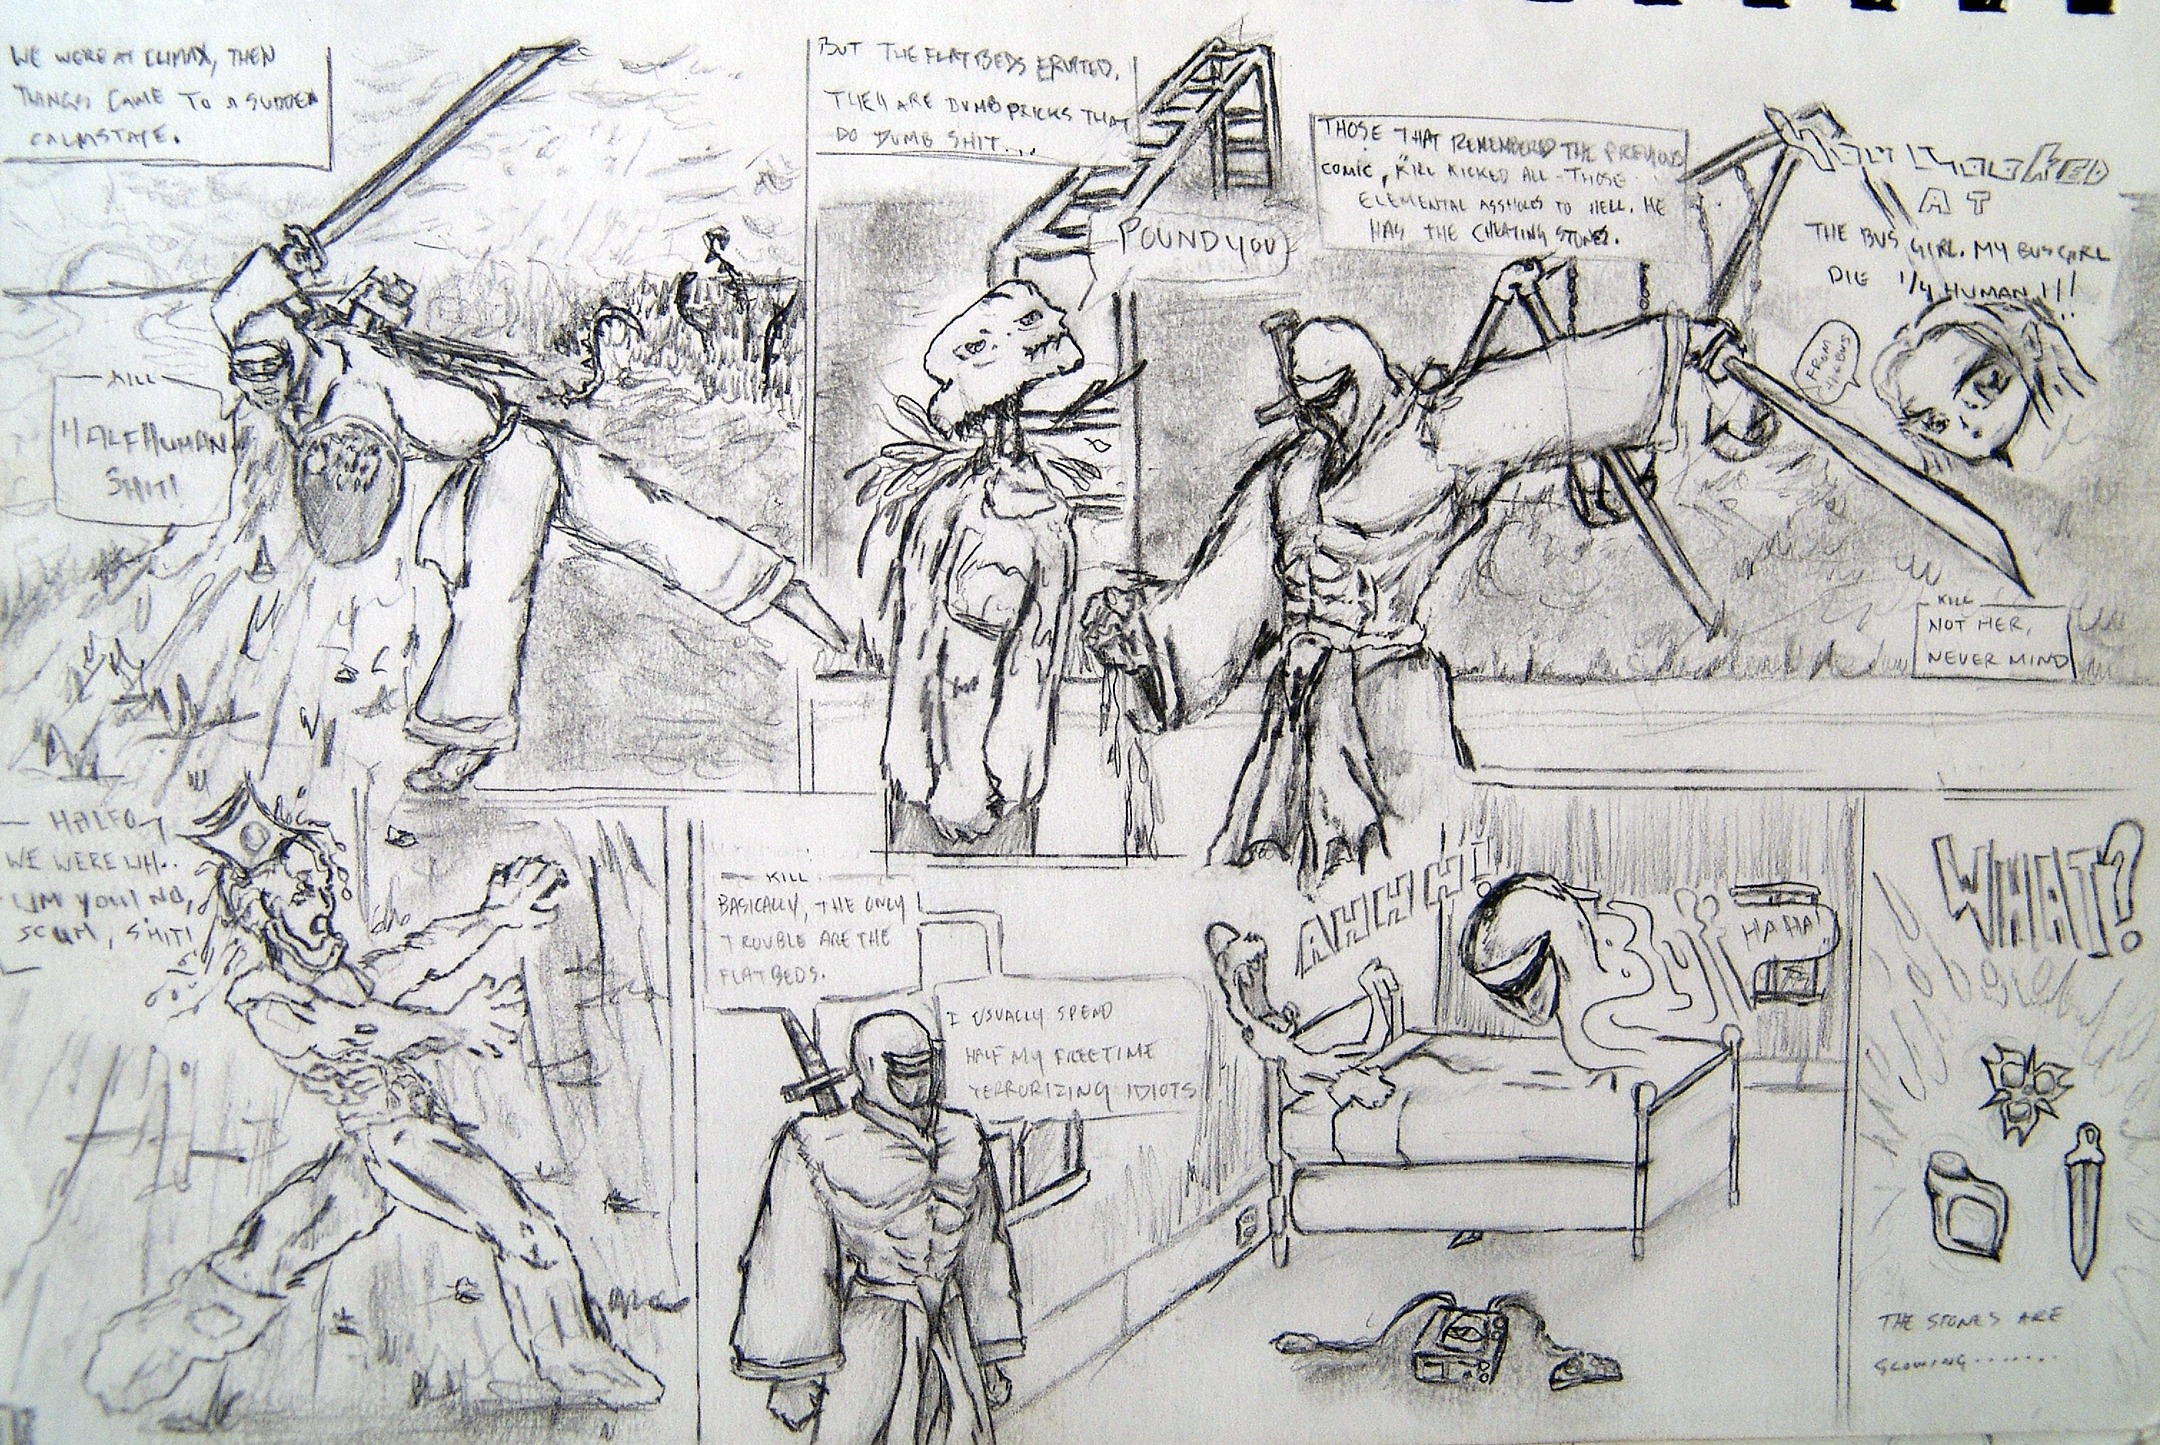 WE WERE AT CLIMAX, THEN
THINGS CAME TO A SUDDEN
CALMSTATE.
KILL
HALFHUMAN
SHIT!
BUT THE FLATBEDS ERUPTED.
THEY ARE DUMB PRICKS THAT
DO DUMB SHIT...
POUND YOU
THOSE THAT REMEMBERED THE PREVIOUS
COMIC, KILL KICKED ALL THOSE
ELEMENTAL ASSHOLES TO HELL. HE
HAS THE CHEATING STONES.
YOU LOOKED
AT
THE BUS GIRL. MY BUS GIRL
DIE 1/4 HUMAN!!!
FROM
HIS BUS
KILL
NOT HER,
NEVER MIND
HALFO
WE WERE WH..
UM YOU! NO,
SCUM, SHIT!
KILL
BASICALLY, THE ONLY
TROUBLE ARE THE
FLATBEDS.
I USUALLY SPEND
HALF MY FREETIME
TERRORIZING IDIOTS
AHHH!!
HA HA!
WHAT?
THE STONES ARE
GLOWING........